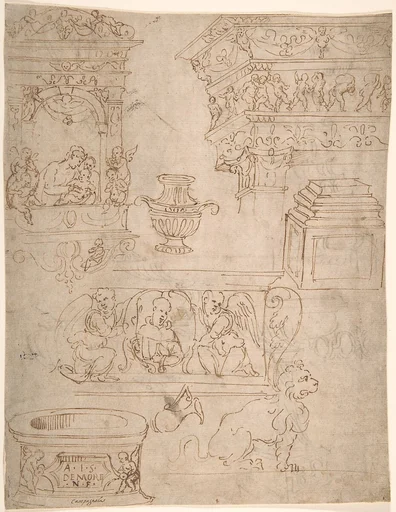 A · I · S
DEMORE
· N · F ·
Campagnola